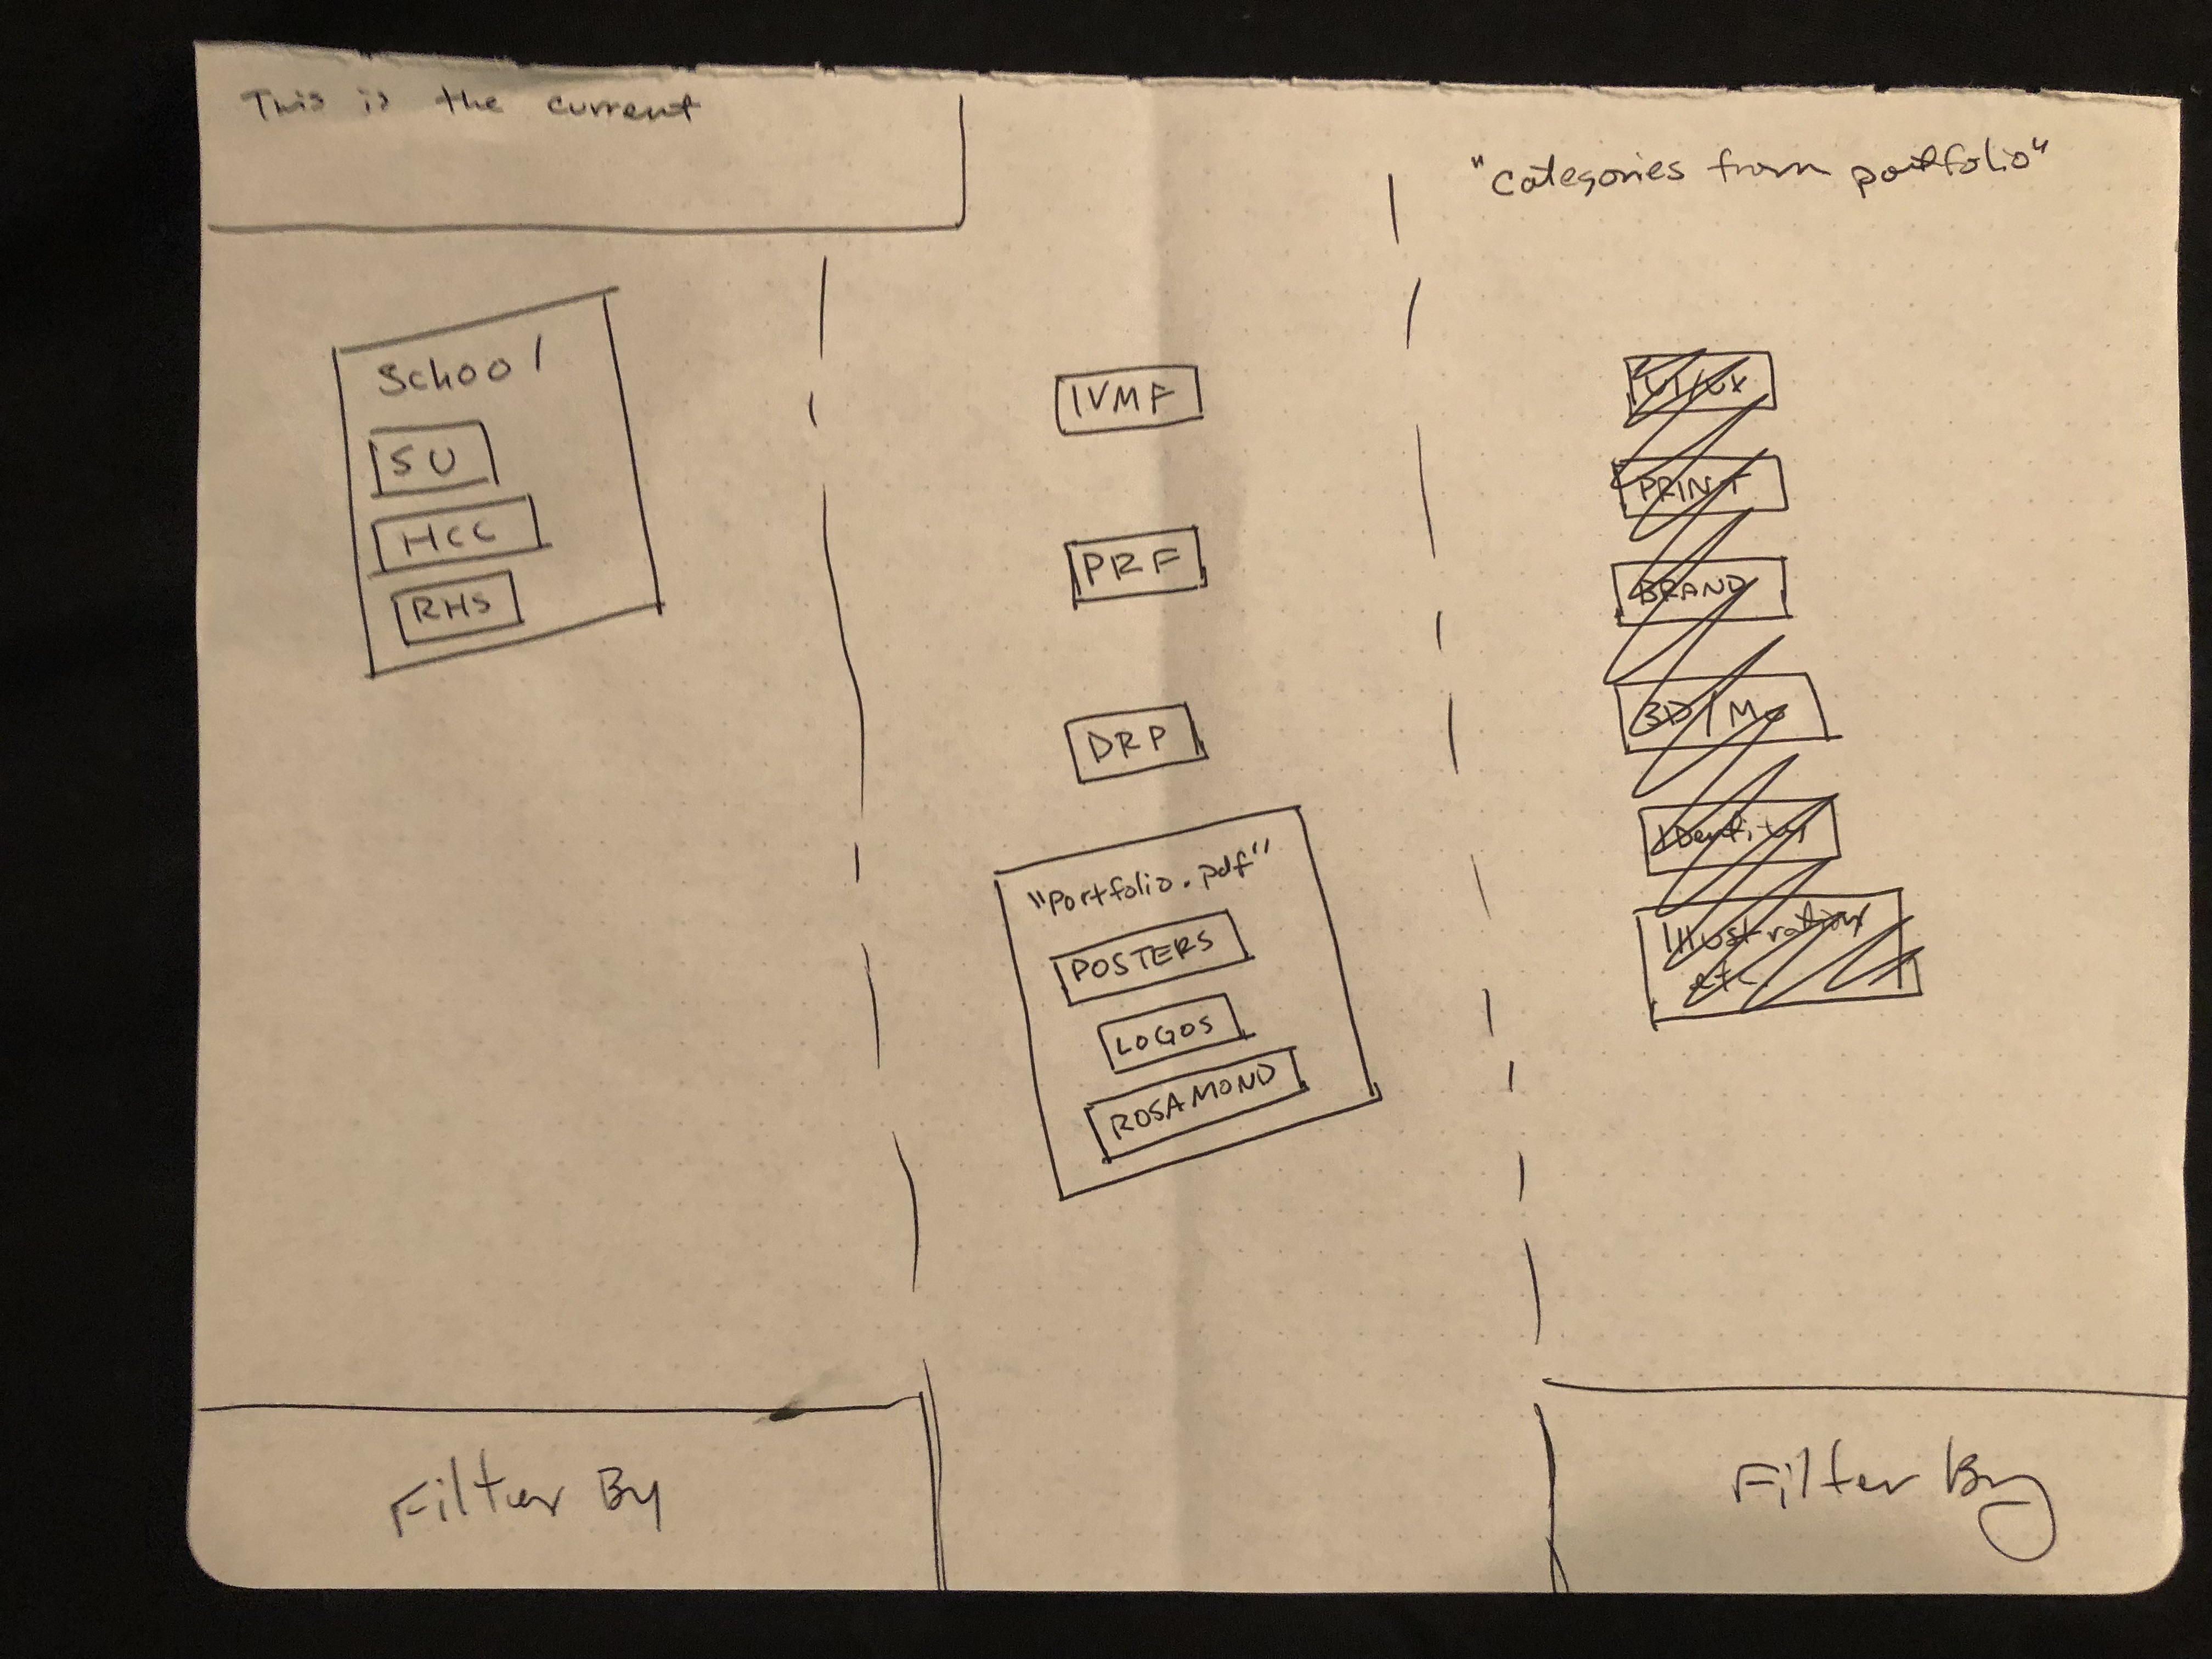 This is the current
School
SU
HCC
RHS
Filter By
IVMF
PRF
DRP
"portfolio.pdf"
POSTERS
LOGOS
"categories from portfolio"
PRINT
BRAND
Illustration
etc
Filter By